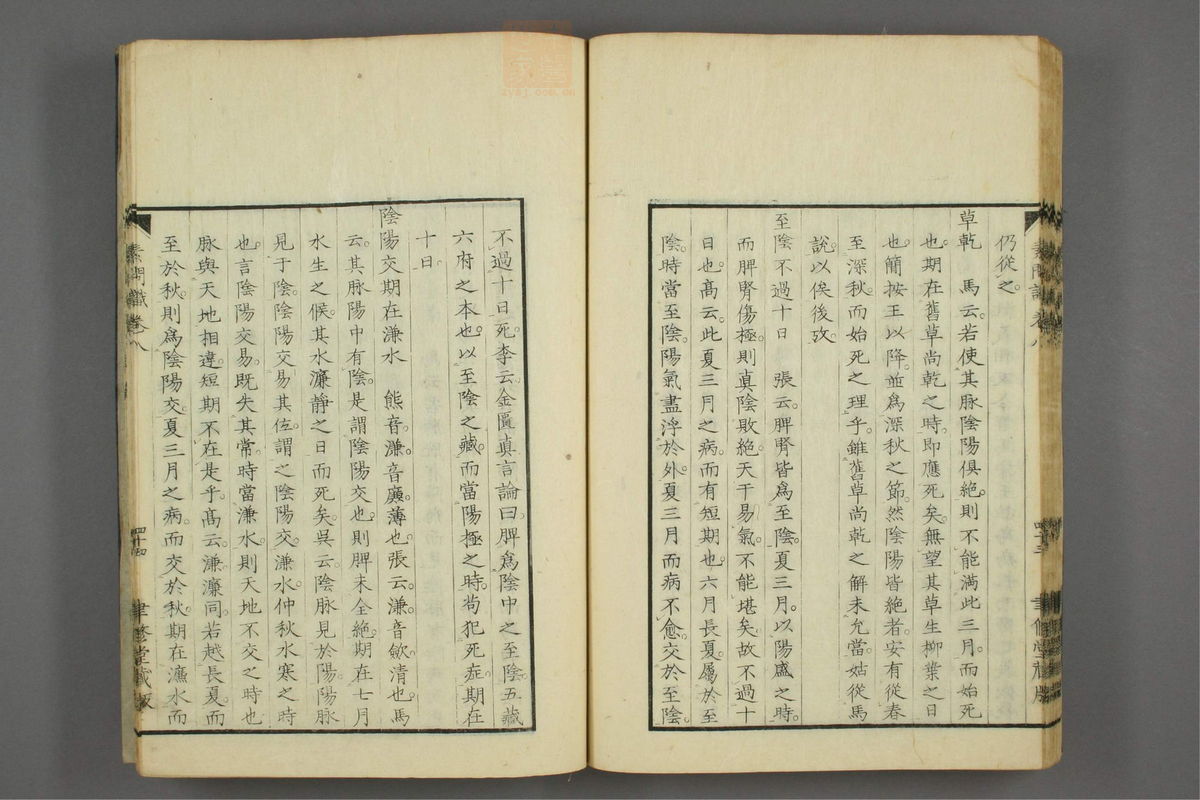 仍從之。
草乾　馬云。若使其脉陰陽俱絶。則不能滿此三月。而始死
也。期在舊草尚乾之時。即應死矣。無望其草生柳葉之日
也。簡按王以降。並爲深秋之節。然陰陽皆絶者。安有從春
至深秋。而始死之理乎。雖舊草尚乾之解未允當。姑從馬
說。以俟後攷。
至陰不過十日　張云。脾腎皆爲至陰。夏三月。以陽盛之時。
而脾腎傷極。則眞陰敗絶。天干易氣。不能堪矣。故不過十
日也。高云。此夏三月之病。而有短期也。六月長夏。屬於至
陰。時當至陰。陽氣盡浮於外。夏三月而病不愈。交於至陰。
不過十日死。李云。金匱眞言論曰。脾爲陰中之至陰。五藏
六府之本也。以至陰之藏。而當陽極之時。苟犯死症。期在
十日。
陰陽交期在溓水　熊音。溓。音廉。薄也。張云。溓。音歛。清也。馬
云。其脉陽中有陰。是謂陰陽交也。則脾未全絶。期在七月
水生之候。其水濂靜之日而死矣。吳云。陰脉見於陽。陽脉
見于陰。陰陽交易其位。謂之陰陽交。溓水。仲秋水寒之時
也。言陰陽交易。既失其常。時當溓水。則天地不交之時也。
脉與天地相違。短期不在是乎。高云。溓濂同。若越長夏。而
至於秋。則爲陰陽交。夏三月之病。而交於秋。期在濂水而
素問識卷八
四十三
聿修堂藏版
素問識卷八
四十四
聿修堂藏版
zysj.com.cn